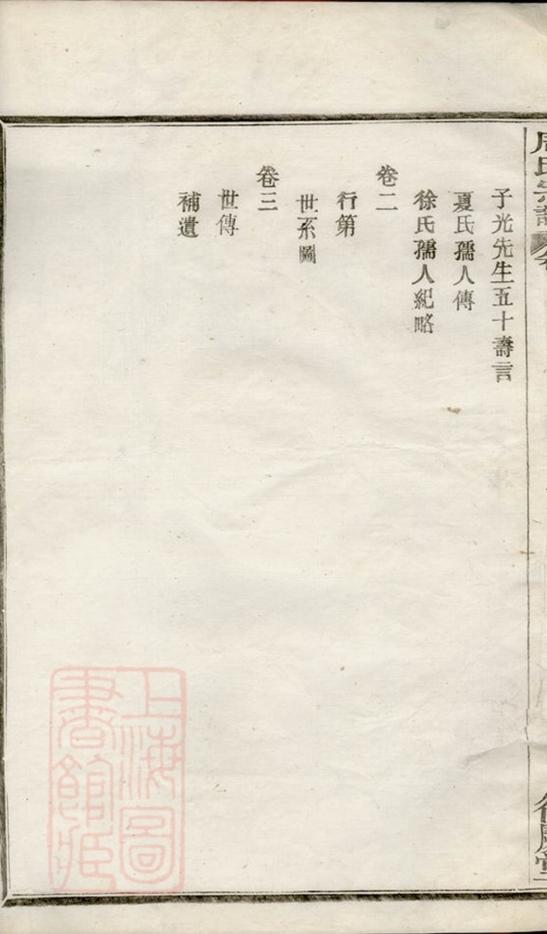 周氏宗譜
子光先生五十壽言
夏氏孺人傳
徐氏孺人紀略
卷二
行第
世系圖
卷三
世傳
補遺
上海圖
書館藏